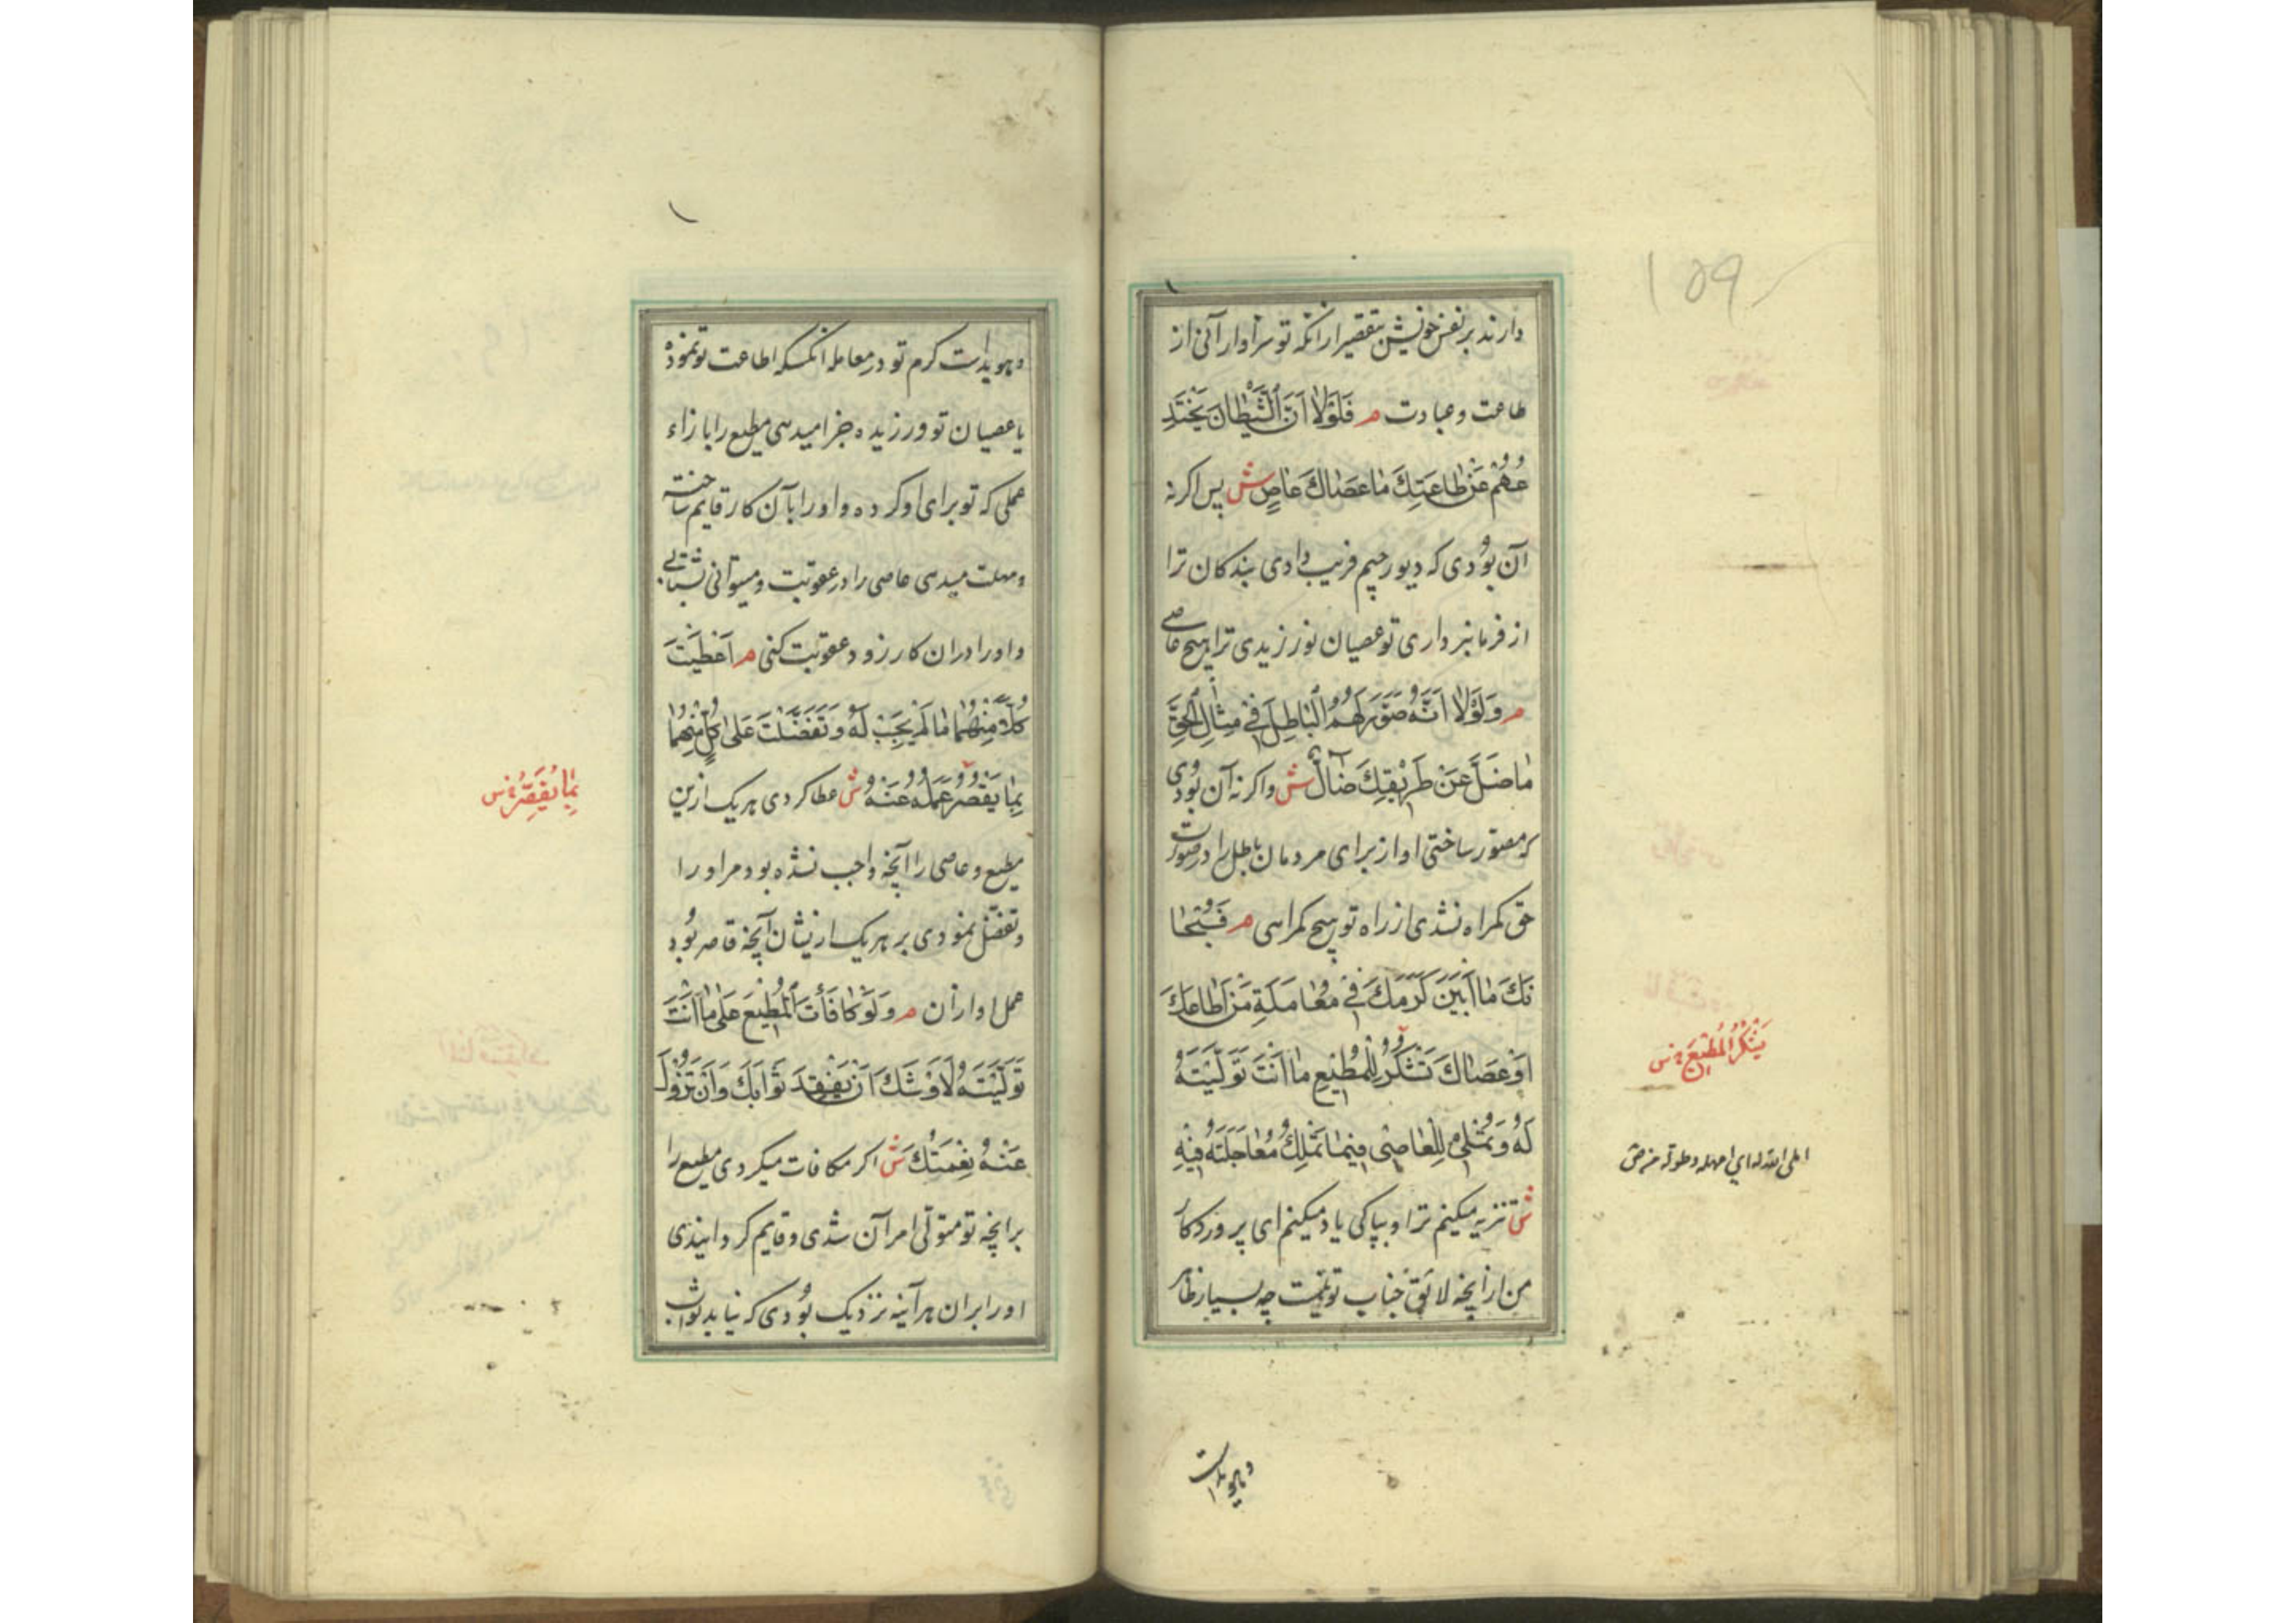 ۱۵۹
دارند بر نفس خویش بتقصیر ازانکه تو سزاوار آنی از
طاعت و عبادت م فَلَوْلَا اَنَّ الشَّيْطَانَ يَخْتَدِ
عُهُمْ عَنْ طَاعَتِكَ مَا عَصَاكَ عَاصٍ ش پس اکر نه
آن بُودی که دیو رجیم فریب دادی بندکان ترا
از فرمانبرداری تو عصیان نورزیدی ترا هیچ عاصی
م وَلَوْلَا اَنَّهُ صَوَّرَ لَهُمُ الْبَاطِلَ فِي مِثَالِ الْحَقِّ
مَا ضَلَّ عَنْ طَرِيْقِكَ ضَآلٌّ ش و اکر نه آن بُودی
که مصوّر ساختی او از برای مردمان باطل را در صورت
حق کمراه نشدی از راه تو هیچ کمراهی م فَسُبْحَا
نَكَ مَا اَبْيَنَ كَرَمَكَ فِي مُعَامَلَةِ مَنْ اَطَاعَكَ
اَوْ عَصَاكَ تَشْكُرُ لِلْمُطِيْعِ مَا اَنْتَ تَوَلَّيْتَهُ
لَهُ وَ تُمْلِي لِلْعَاصِي فِيمَا تَمْلِكُ مُعَاجَلَتَهُ فِيْهِ
ش تنزیه میکنم ترا و بپاکی یاد میکنم ای پروردکار
من ازانچه لائق جناب تو نیست چه بسیار ظاهر
يَشْكُرُ الْمُطِيعَ س
املى الله له اي امهله و طوّل له ص
و هویداست
و هویداست کرم تو در معامله انکسکه اطاعت تو نموده
یا عصیان تو ورزیده جزا میدهی مطیع را بازاء
عملی که تو برای او کرده و او را بآن کار قایم ساخته
و مهلت میدهی عاصی را در عقوبت و میتوانی بشتابی
و او را دران کار زود عقوبت کنی م اَعْطَيْتَ
كُلًّا مِنْهُمَا مَا لَمْ يَجِبْ لَهُ وَ تَفَضَّلْتَ عَلَى كُلٍّ مِنْهُمَا
بِمَا يَقْصُرُ عَمَلُهُ عَنْهُ ش عطا کردی هر یک ازین
مطیع و عاصی را آنچه واجب نشده بود مر او را
و تفضّل نمودی بر هر یک ازیشان آنچه قاصر بُود
عمل او ازان م وَلَوْ كَافَأْتَ الْمُطِيْعَ عَلَى مَا اَنْتَ
تَوَلَّيْتَهُ لَاَوْشَكَ اَنْ يَفْقِدَ ثَوَابَكَ وَ اَنْ تَزُوْلَ
عَنْهُ نِعْمَتُكَ ش اکر مکافات میکردی مطیع را
برانچه تو متولّی امر آن شدی و قایم کردانیدی
او را بران هرآینه نزدیک بُودی که نیابد ثواب
بِمَا يُقَصِّرُ س